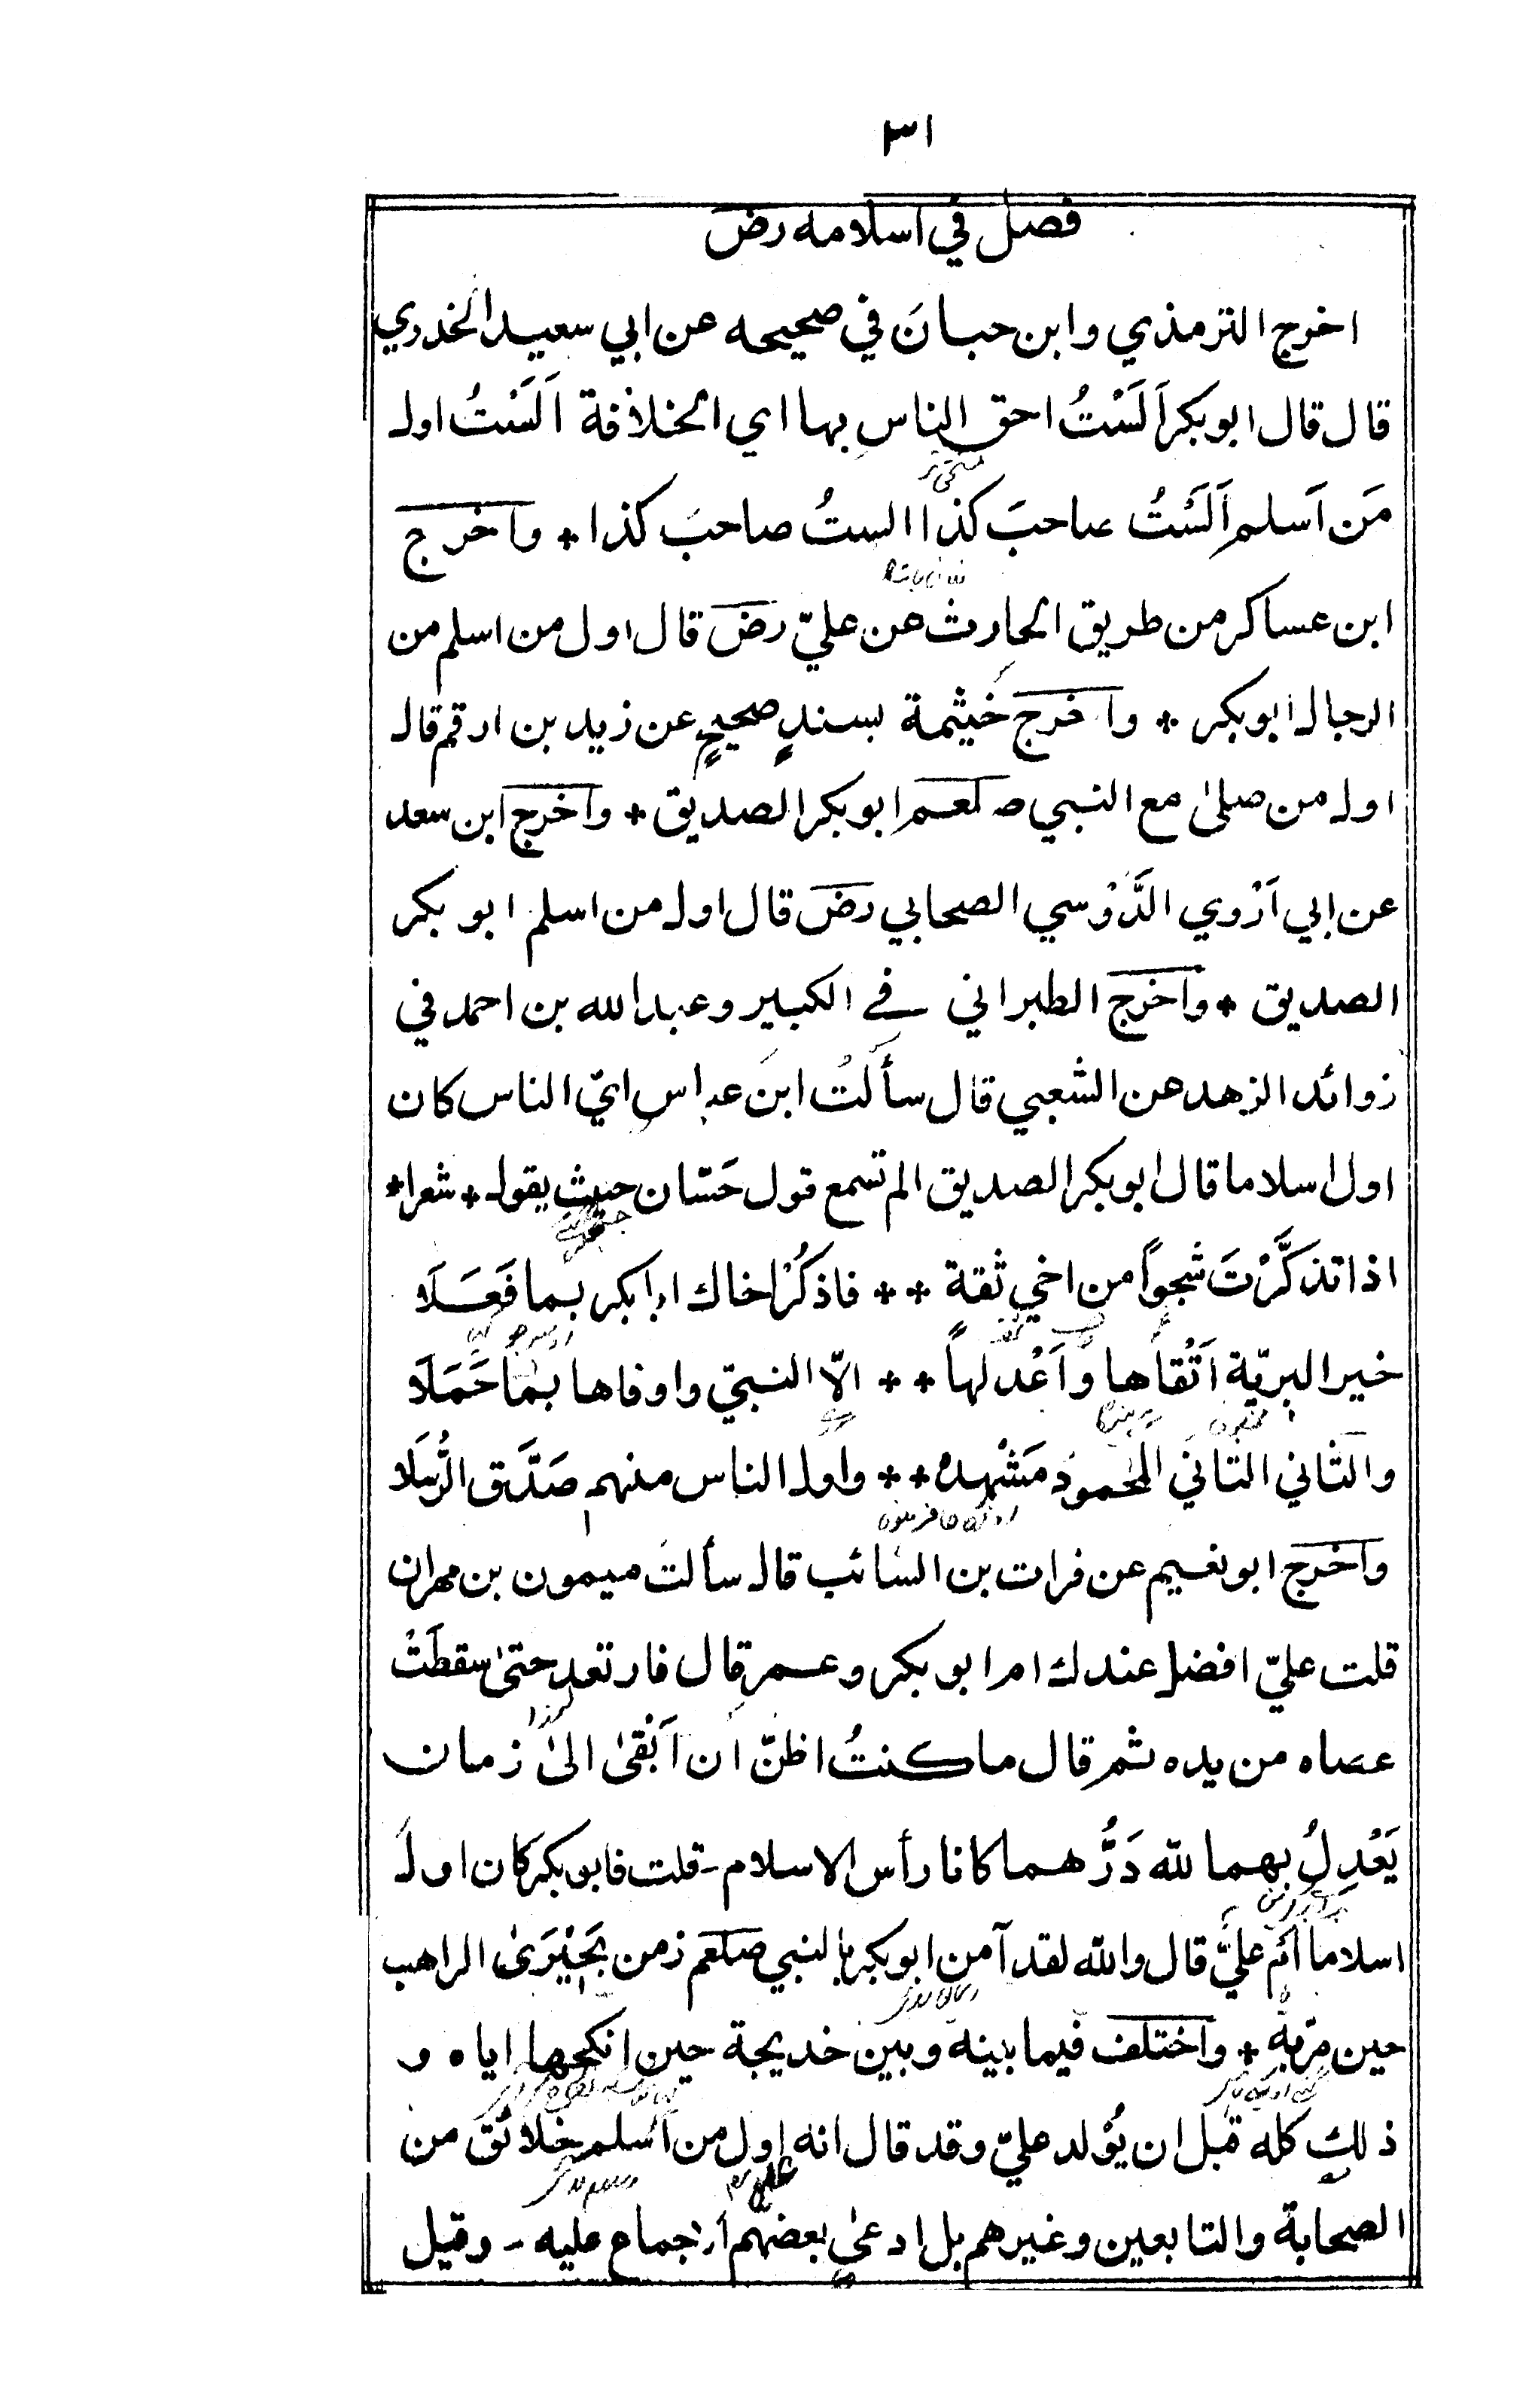 ٣١
فصل في اسلامه رض
اخرج الترمذي وابن حبانَ في صحيحه عن ابي سعيد الخدري
قال قال ابوبكر اَلَسْتُ احق الناسِ بها اي الخلافة اَلَسْتُ اول
مَن اَسلم اَلَسْتُ صاحبَ كذا الستُ صاحبَ كذا * واخرج
ابن عساكر من طريق الحارث عن عليّ رض قال اول من اسلم من
الرجال ابوبكر * واخرج خيثمة بسندٍ صحيحٍ عن زيد بن ارقم قال
اول من صلىٰ مع النبي صلعم ابوبكر الصديق * واخرج ابن سعد
عن ابي اَرْوي الدَّوْسي الصحابي رض قال اول من اسلم ابو بكر
الصديق * واخرج الطبراني في الكبير وعبد الله بن احمد في
زوائد الزهد عن الشعبي قال سألتُ ابنَ عباس ايّ الناس كان
اول اسلاما قال ابوبكر الصديق الم تسمع قول حَسّان حيث يقول * شعرا *
اذا تذكَّرْتَ شجواً من اخي ثقة ** فاذكُرْ اخاك ابا بكر بما فَعَلَا
خير البريّة اَتْقاها وَاَعْدلهاً ** الّا النبيّ واوفاها بما حَمَلَا
والثاني التاني المحمودُ مَشْهده ** واول الناس منهم صَدَّق الرُّسلَا
واخرج ابو نعيم عن فرات بن السائب قال سألت ميمون بن مهران
قلت عليّ افضل عندك ام ابو بكر وعمر قال فارتعد حتىٰ سقطَتْ
عصاه من يده ثم قال ما كنتُ اظنّ ان اَبْقىٰ الىٰ زمان
يَعْدِلُ بهما لله دَرُّهما كانا رأس الاسلام - قلت فابو بكر كان اولَ
اسلاما ام عليّ قال والله لقد آمن ابوبكر بالنبي صلعم زمن بَحِيْرَىٰ الراهب
حين مرّ به * واختلف فيما بينه وبين خديجة حين انكحها اياه و
ذلك كله قبل ان يُولد عليّ وقد قال انه اول من اَسلم خلائق من
الصحابة والتابعين وغيرهم بل ادعىٰ بعضهم الاجماع عليه - وقيل